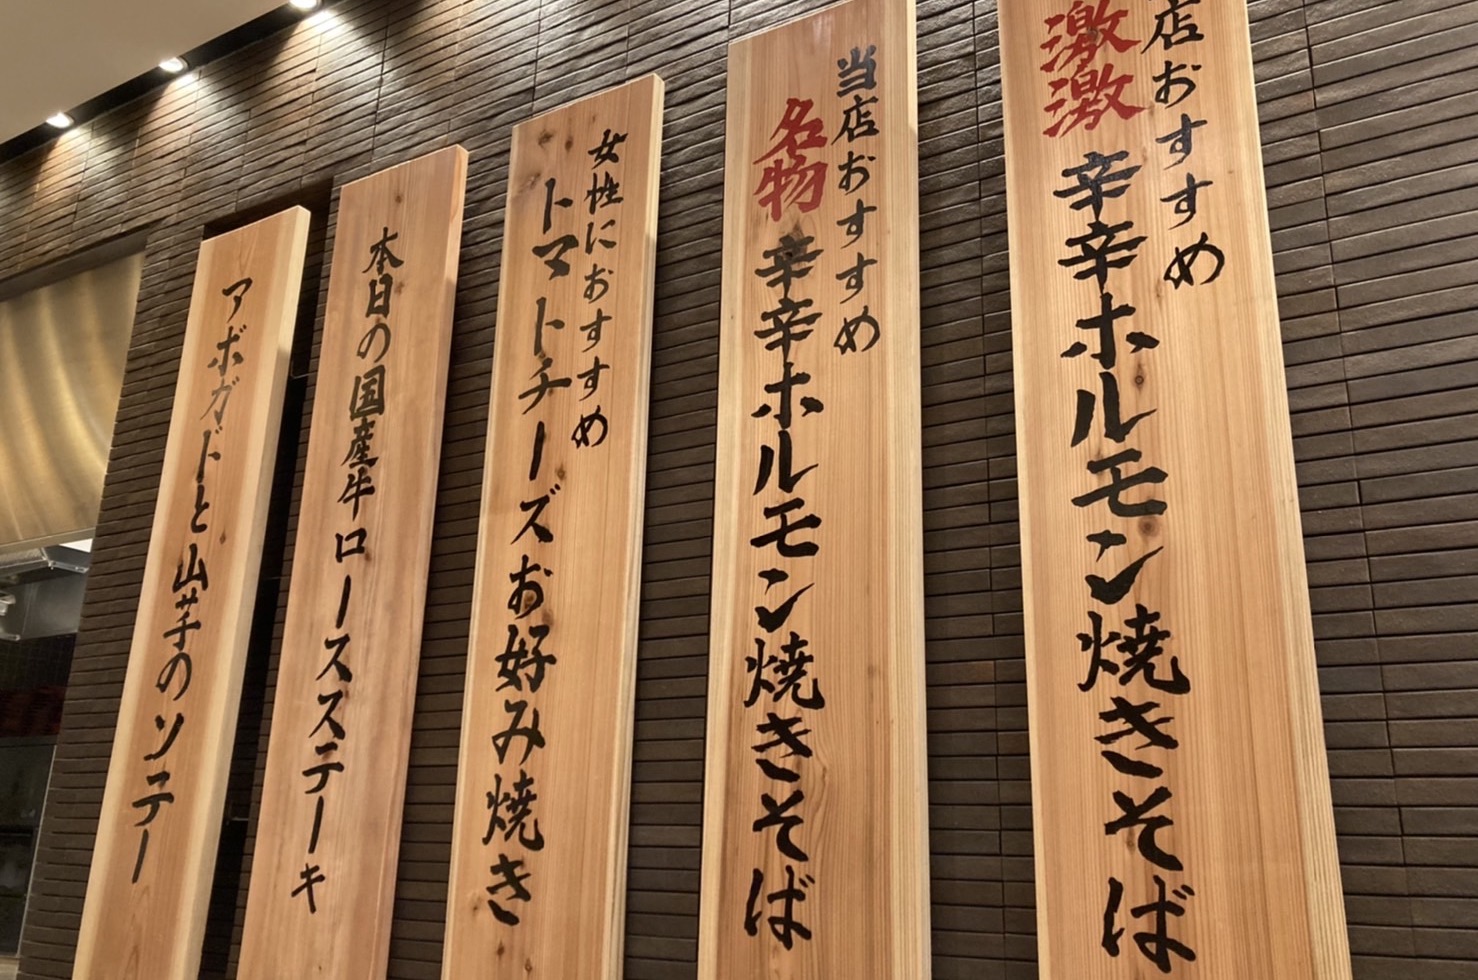 店おすすめ
激激辛辛ホルモン焼きそば
当店おすすめ
名物辛辛ホルモン焼きそば
女性におすすめ
トマトチーズお好み焼き
本日の国産牛ロースステーキ
アボガドと山芋のソテー